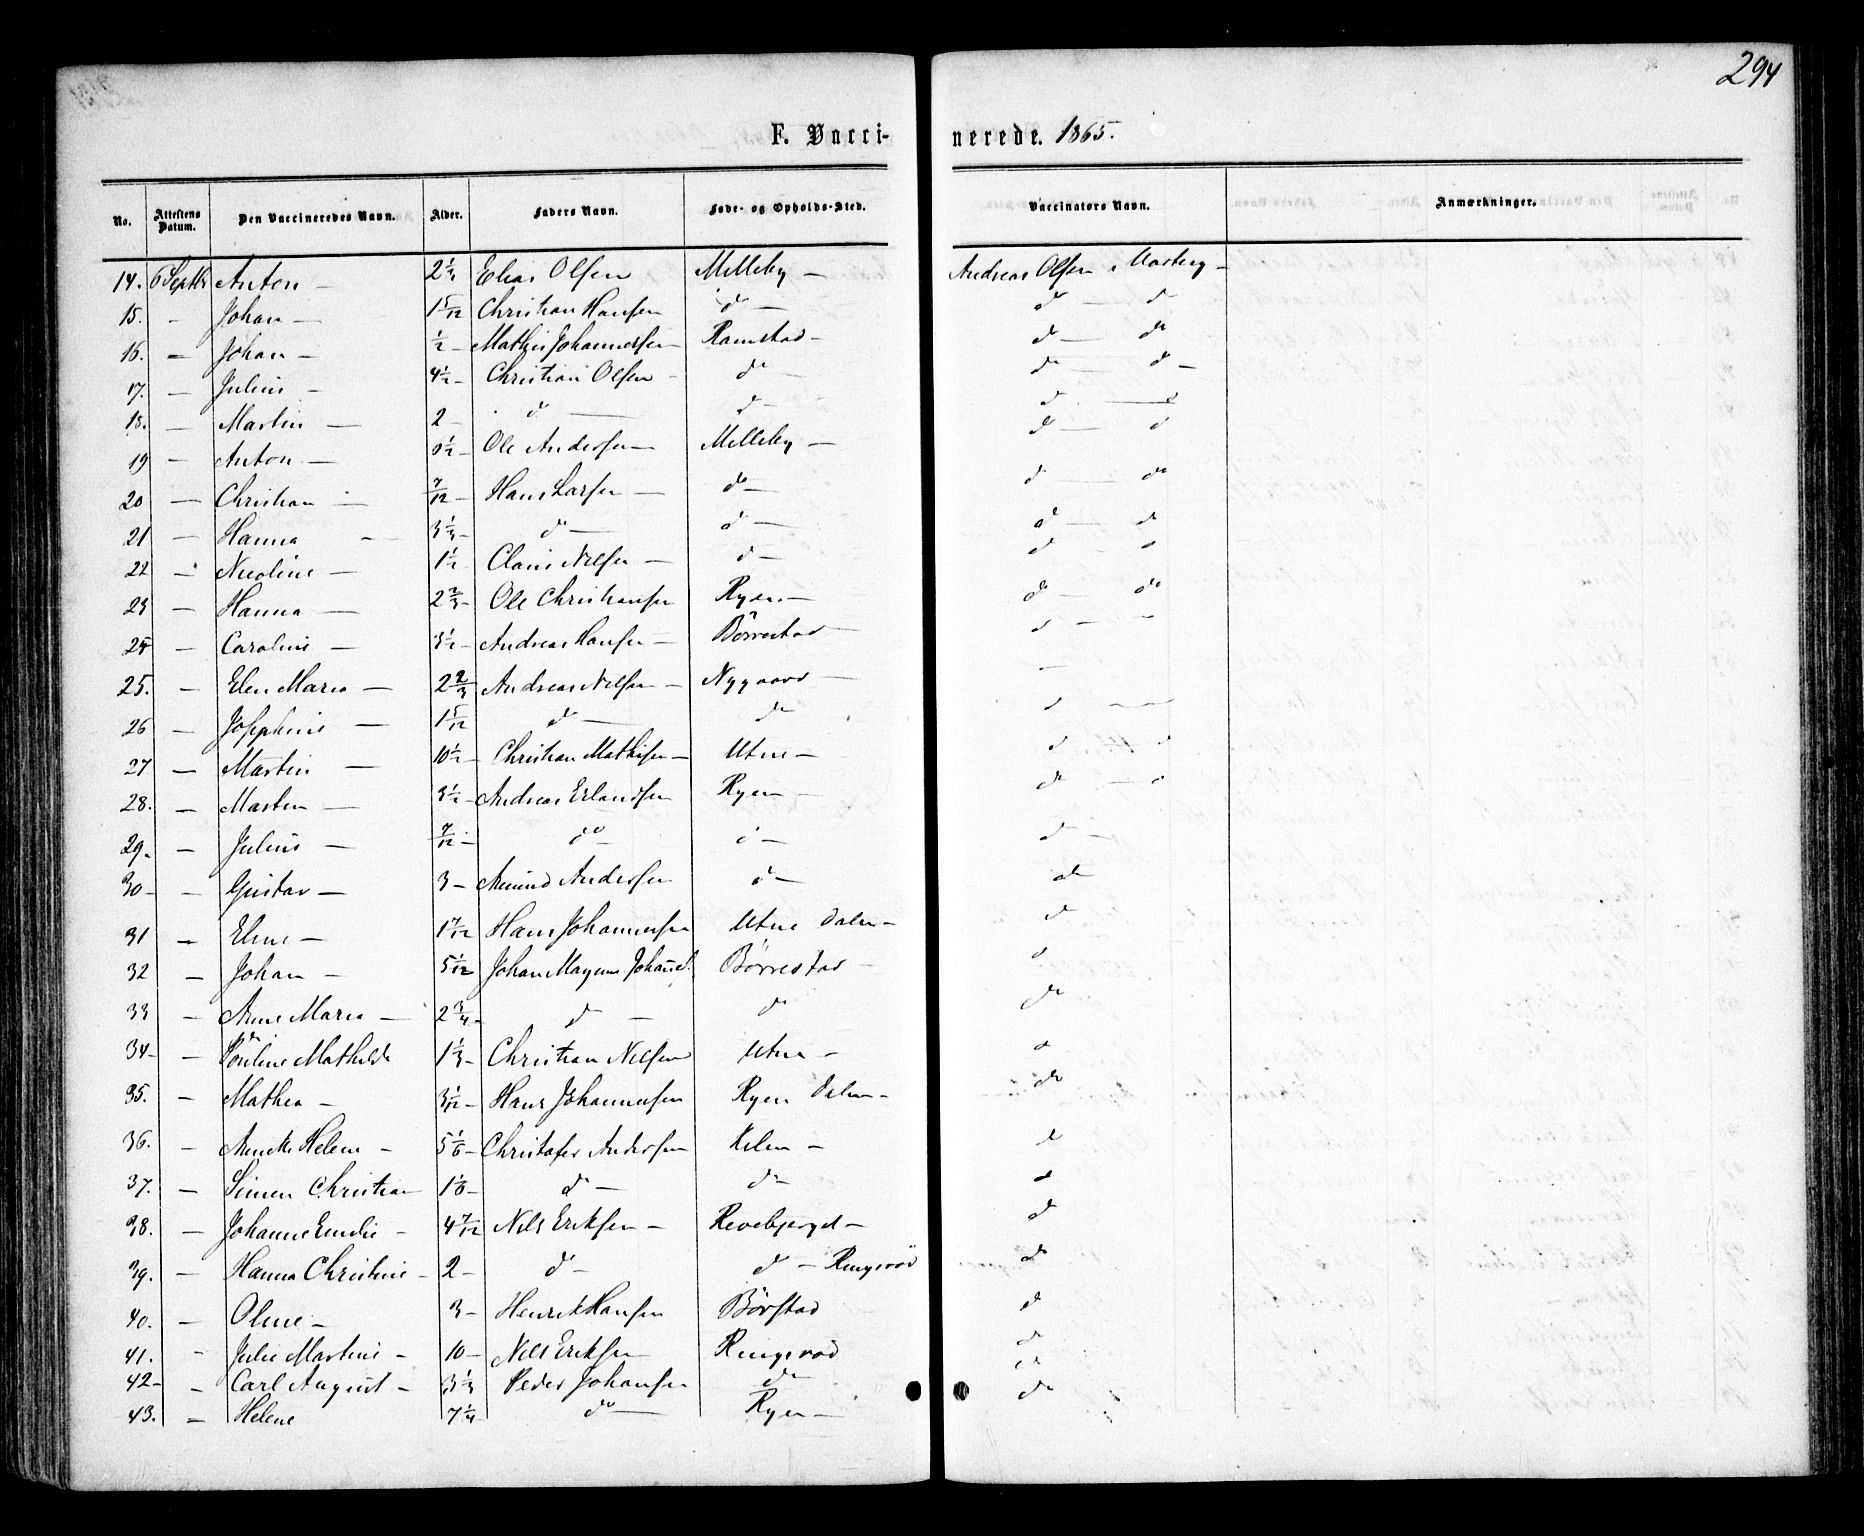 294
F. Vacci- nerede. 1865.
No. Attestens Datum. Den Vaccineredes Navn. Alder. Faders Navn. Føde- og Opholds-Sted. Vaccinators Navn. Anmærkninger.
14. 6 Septbr Anton — 2 1/3 Elias Olsen Milleby — Andreas Olsen
15. - Johan — 1 5/12 Christian Hansen do — do — do
16. — Johan — 1/2 — Mathis Johannesen — Ramstad — do — do
17. — Julius — 4 1/2 — Christian Olsen do — do — do —
18. — Martin — 2 — do — do — do — do
19 — Anton — 1/2 — Ole Andersen — Milleby — do — do
20 — Christian — 7/12 — Hans Larsen — do — do — do
21 — Hanna - 3 1/3 — do — do — do — do
22 — Nicoline — 1 1/2 Claus Nilsen — do — do — do
23 — Hanna — 2 2/3 — Ole Christiansen Ryen — do — do
24 — Caroline — 3 1/2 — Andreas Hansen — Börrestad — do — —
25. — Elen Maria — 2 2/3 Andreas Nilsen — Nygaard — —
26 — Josephine — 1 5/12 do — do do — —
27 — Martin — 10 1/2 — Christian Mathisen — Utne — do do
28. — Marten — 3 1/2 — Andreas Erlandsen Ryen — do — do
29. — Julius — 7/12 — do do — do —
30 — — Gustav — 3 — Amund Andersen do — do
31 — Eline — 1 7/12 Hans Johannesen Utne Dalen — do
32 — Johan — 5 1/12 Johan Magnus Johans. Börrestad — do
33 — Anne Maria — 2 3/4 — do — do do
34 — — Pauline Mathilde 1 1/3 — Christian Nilsen Utne — do
35. — Mathea — 3 1/12 — Hans Johannesen Ryen Dalen — do
36. — Helene — 5 1/6 — Christofer Andersen Kilen — do
37. — Simen Christian 1 1/6 — do — do — do
38. — Johanne Emilie — 4 7/12 Nils Eriksen — Revebjerget — do
39. — Hanna Christine — 2 — do — do — Ringsrød do
40. — Oline — 3 — Henrik Hansen Börstad do
41. - Julie Martine — 10 — Nils Eriksen Ringsrød do
42 — — Carl August — 3 1/3 Peder Johansen do — do
43. — Helene 7 1/4 — do — Ryen — do